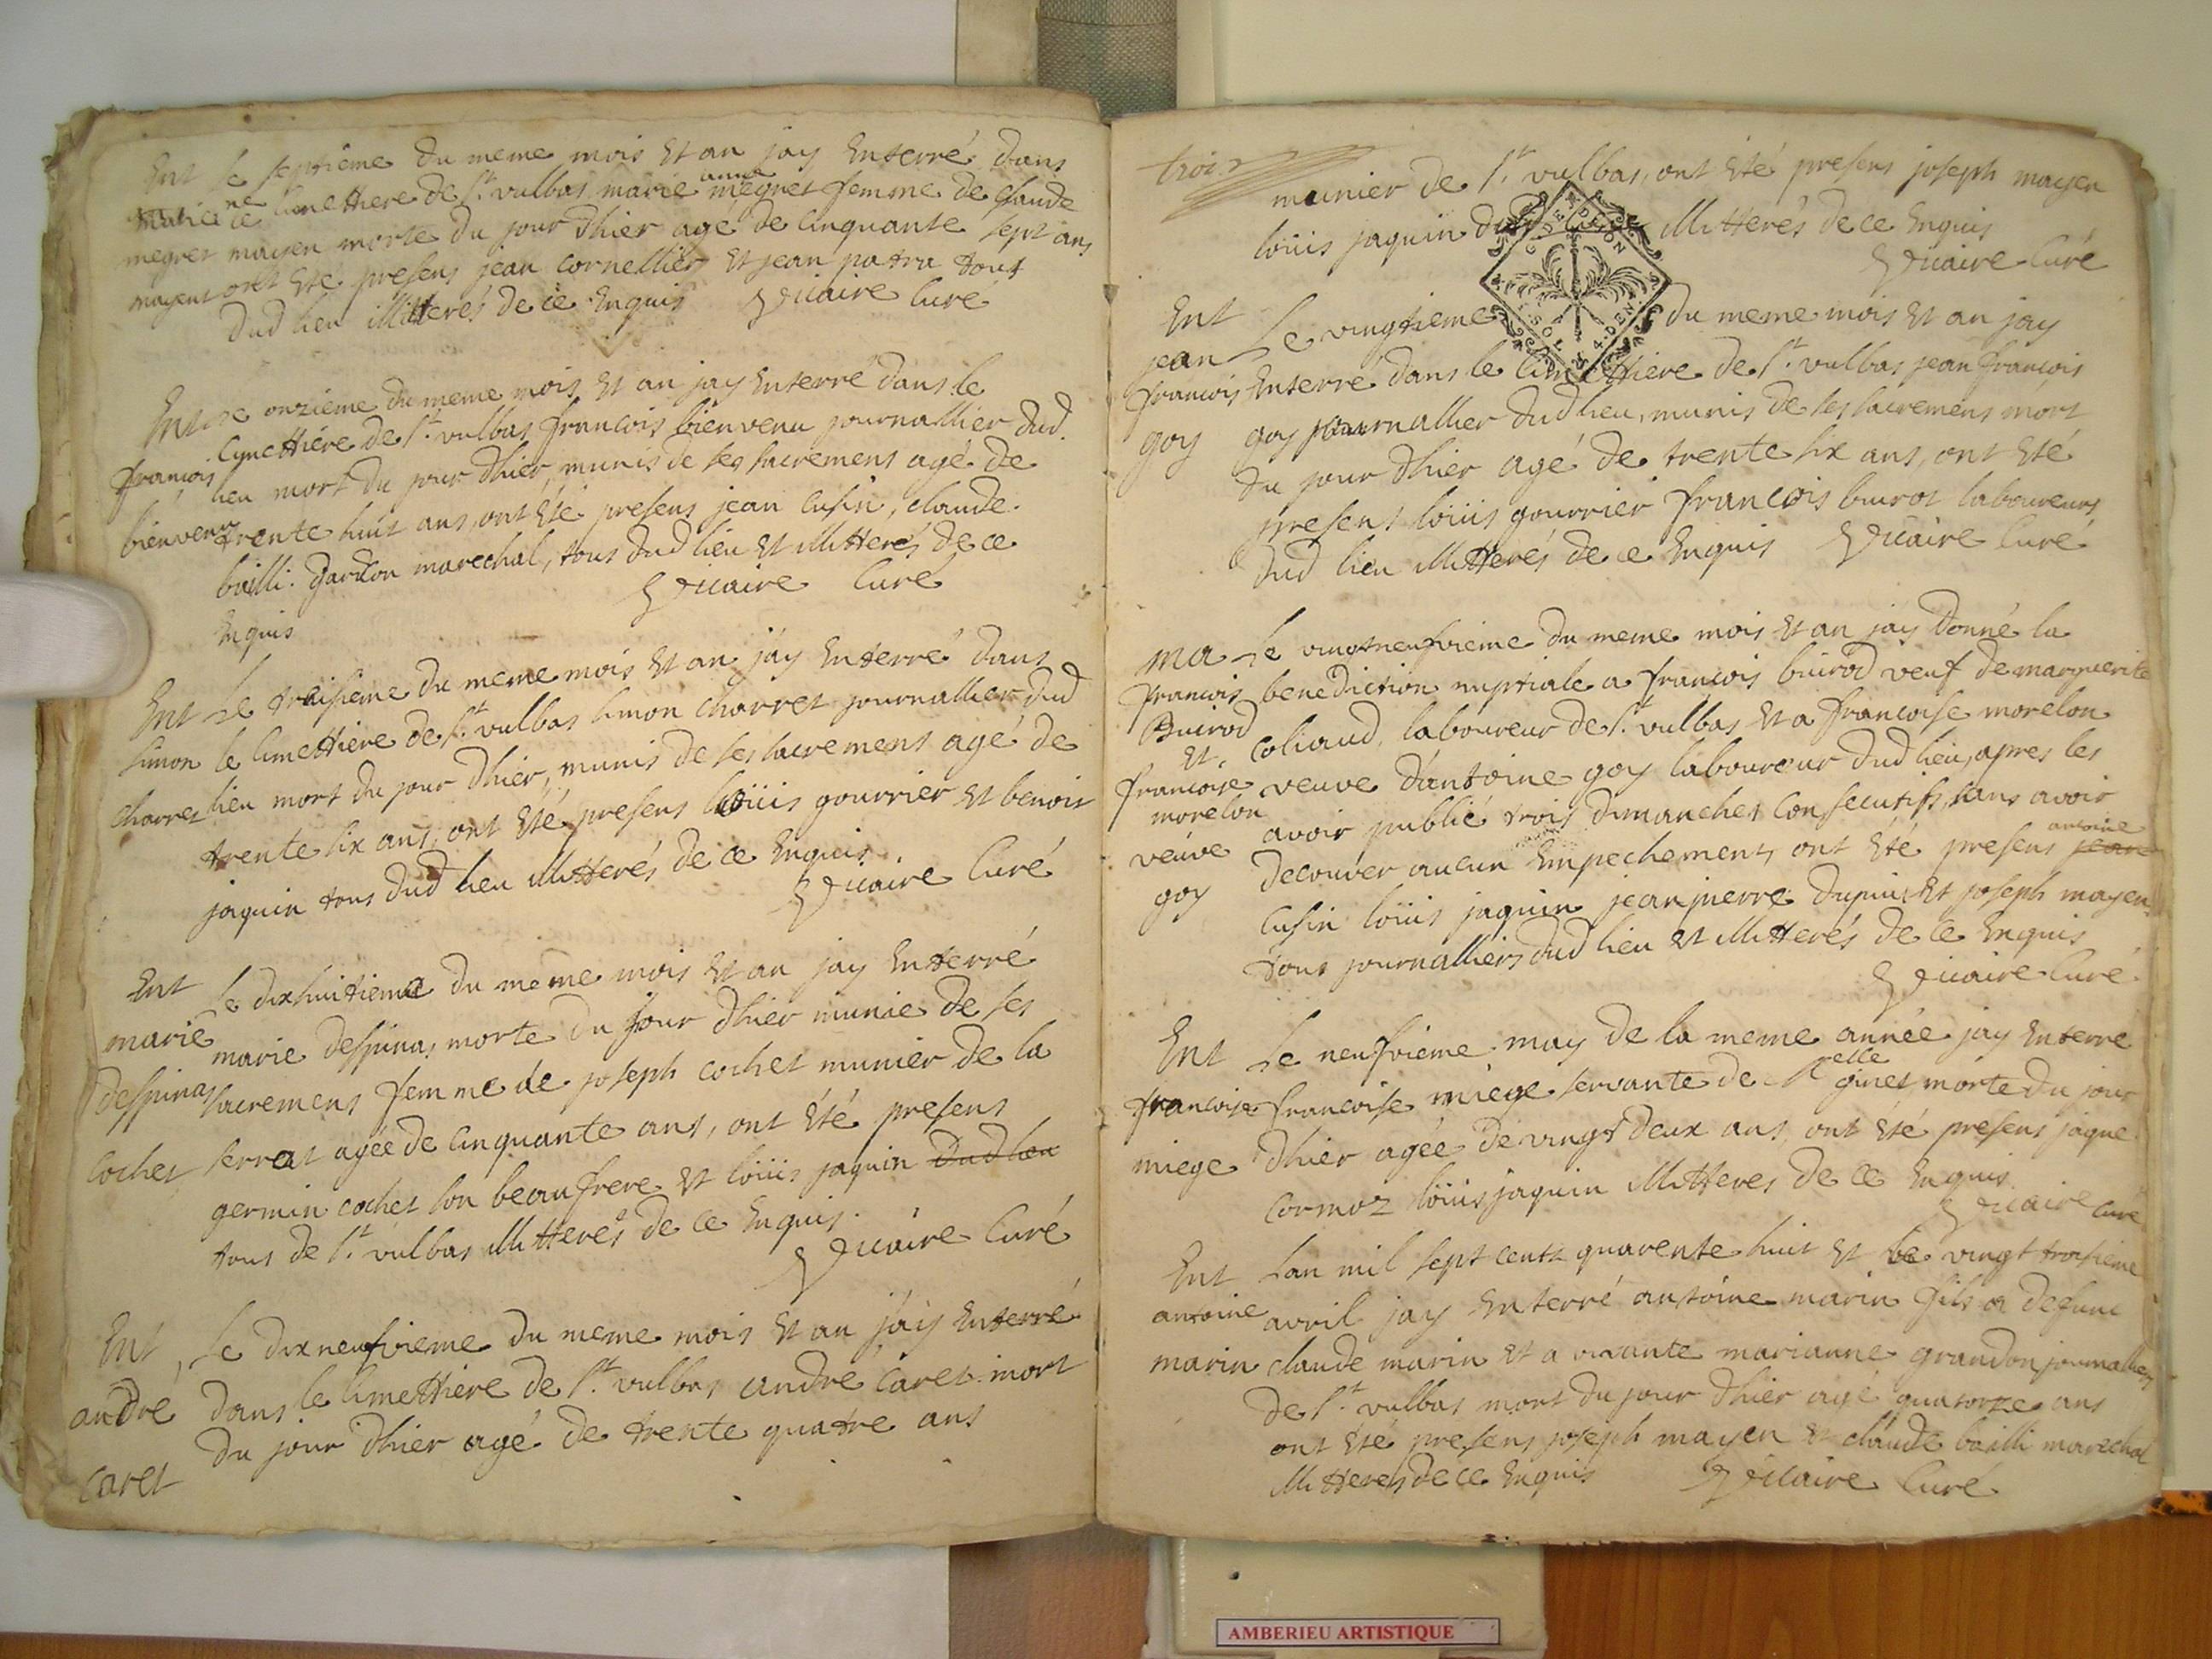 Ent le septième du meme mois et an jay Enterré dans
marie le cimettiere de St. vulbas marie anne megret femme de claude
megret mayen morte du jour dhier age de cinquante sept ans
mayent ont Eté presens jean cornellier et jean patru tous
dud lieu illitterés de ce Enquis Vicaire Curé
Ent Le onzieme du meme mois et an jay Enterré dans le
Cymettiére de St. vulbas francois bienvenu journallier dud.
francois lieu mort du jour dhier, munis de ses sacremens agé de
bienvenu trente huit ans, ont Eté presens jean Cusin, claude
bailli. garcon marechal, tous dud lieu et illitterés de ce
Enquis Vicaire Curé
Ent Le treisieme du meme mois et an jay Enterré dans
simon le Cimettiere de St. vulbas simon charret journallier dud
charret lieu mort du jour dhier, munis de ses sacremens agé de
trente six ans, ont Eté presens loüis gourrier et benoit
jaquin tous dud lieu illitterés de ce Enquis
Vicaire Curé
Ent le dixhuitieme du meme mois et an jay Enterré
marie marie despinas morte du jour dhier munie de ses
despinas sacremens femme de joseph cochet munier de la
cochet serrat agée de cinquante ans, ont Eté presens
germin cochet son beaufrere et loüis jaquin dud lieu
tous de St. vulbas illitterés de ce Enquis.
Vicaire Curé
Ent Le dixneufvieme du meme mois et an jay Enterré
andré dans le Cimettiere de St. vulbas andré Caret mort
du jour dhier agé de trente quatre ans
caret
trois
munier de St. vulbas, ont Eté presens joseph mayen
loüis jaquin dud lieu illitterés de ce Enquis
Vicaire Curé
GEN DE DIJON
SOL 4 DEN
Ent Le vingtieme du meme mois et an jay
jean
francois Enterré dans le Cimettiere de St. vulbas jean francois
goy goy journallier dud lieu, munis de ses sacremens mort
du jour dhier agé de trente six ans, ont Eté
presens loüis gourrier francois buirot laboureurs
dud lieu illitterés de ce Enquis Vicaire Curé
Ma Le vingtneufvieme du meme mois et an jay donné la
francois benediction nuptiale a francois buirod veuf de marguerite
Buirod coliaud, laboureur de St. vulbas et a francoise morelon
et
francoise veuve d'antoine goy laboureur dud lieu, apres les
morelon avoir publié trois dimanches consecutifs, sans avoir
veuve decouver aucun Empechement, ont Eté presens jean antoine
goy Cusin loüis jaquin jean pierre dupuis et joseph mayen
tous journalliers dud lieu et illitterés de ce Enquis
Vicaire Curé
Ent Le neufvieme may de la meme année jay Enterré
francoise francoise miege servante de Melle ginet morte du jour
miege dhier agée de vingt deux ans, ont Eté presens jaque
cormoz loüis jaquin illitteres de ce Enquis
Vicaire Curé
Ent Lan mil sept cents quarente huit et le vingt troisieme
antoine avril jay Enterré antoine marin fils a defunt
marin claude marin et a vivante marianne grandon journalliers
de St. vulbas mort du jour dhier agé quatorze ans
ont Eté presens joseph mayen et claude bailli marechal
illitteres de ce Enquis Vicaire Curé
AMBERIEU ARTISTIQUE